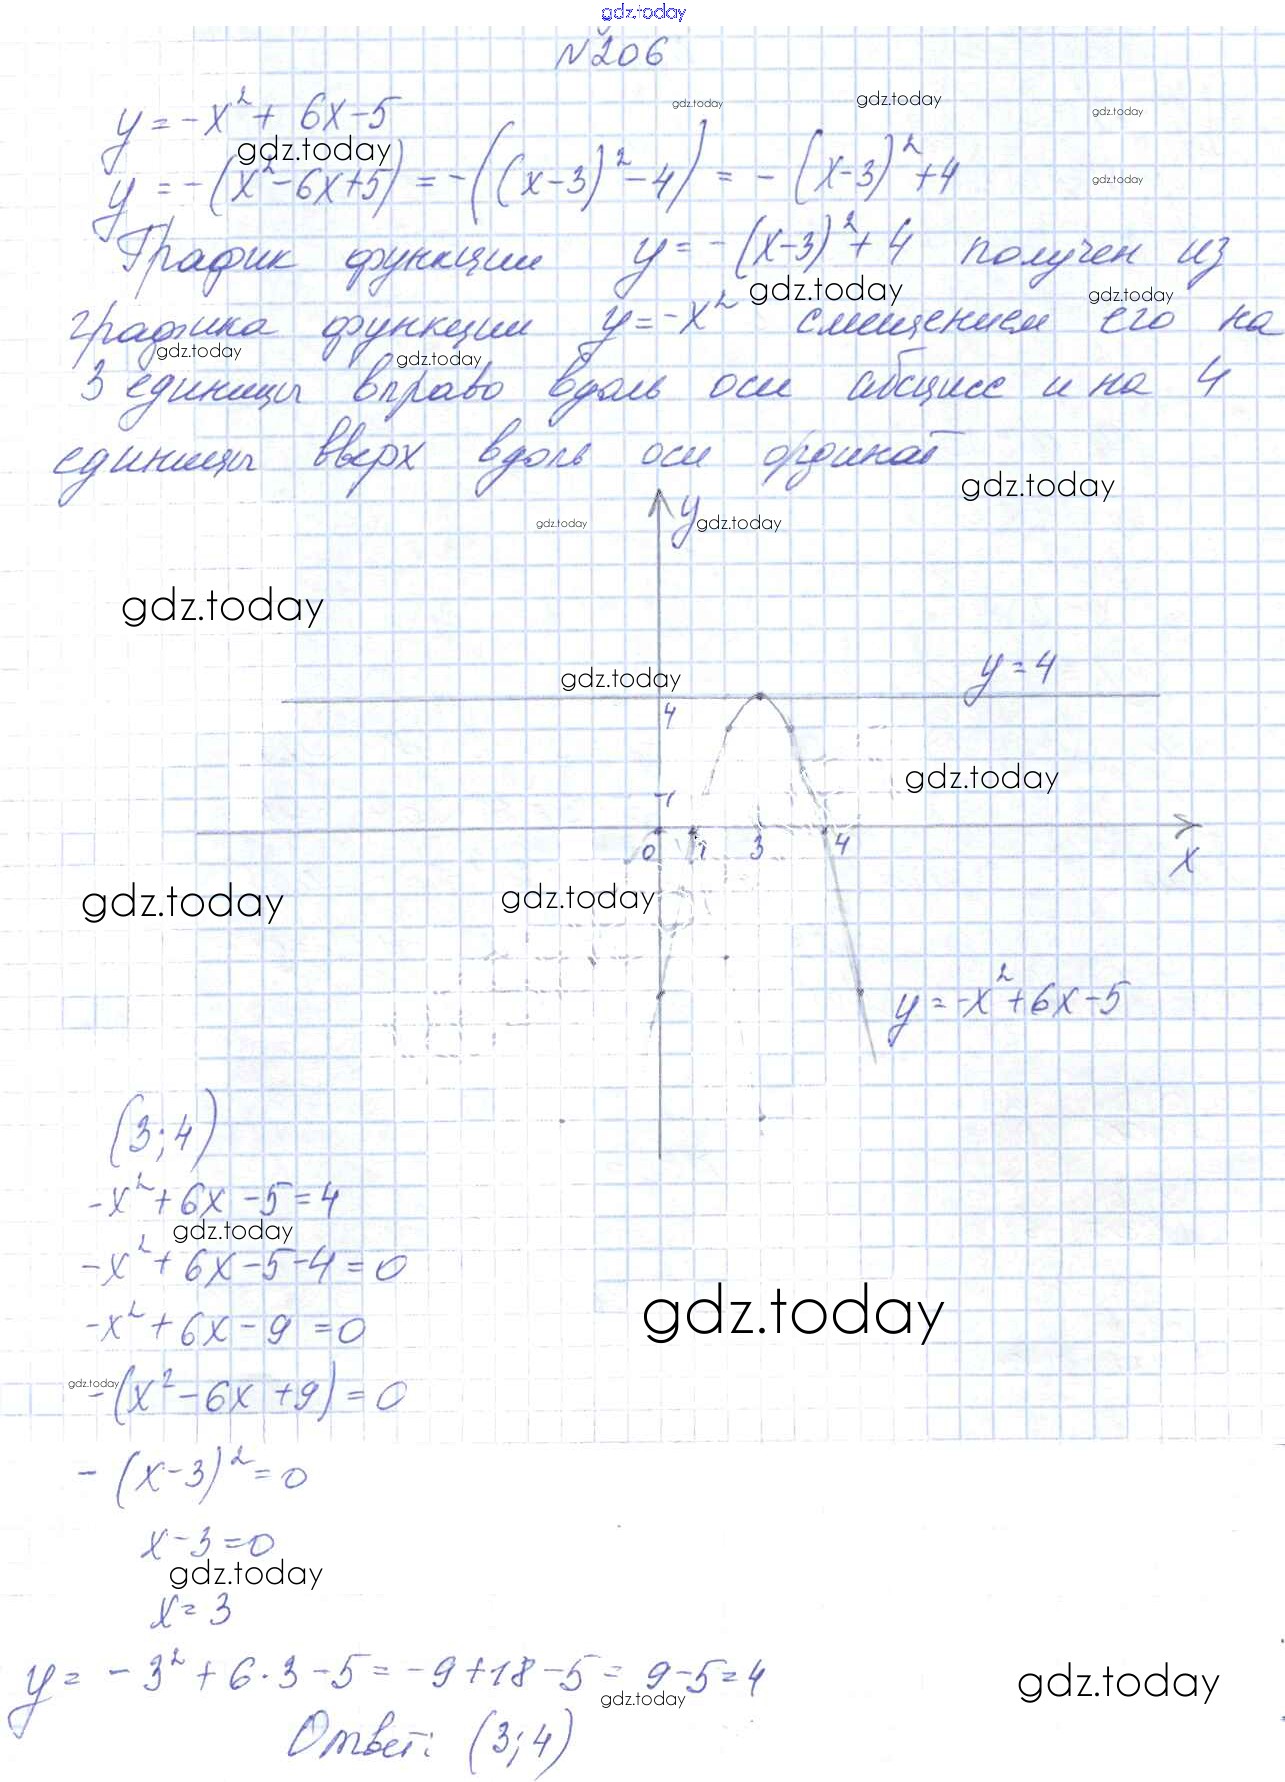 gdz.today
№206
y = -x² + 6x - 5
gdz.today gdz.today gdz.today
gdz.today
y = -(x² - 6x + 5) = -((x-3)² - 4) = -(x-3)² + 4
gdz.today
График функции y = -(x-3)² + 4 получен из
gdz.today gdz.today
графика функции y = -x² смещением его на
gdz.today gdz.today
3 единицы вправо вдоль оси абсцисс и на 4
единицы вверх вдоль оси ординат
gdz.today
y
gdz.today gdz.today
gdz.today
y = 4
gdz.today
4
gdz.today
1
0 1 3 4
x
gdz.today gdz.today
y = -x² + 6x - 5
(3; 4)
-x² + 6x - 5 = 4
gdz.today
-x² + 6x - 5 - 4 = 0
gdz.today
-x² + 6x - 9 = 0
gdz.today
-(x² - 6x + 9) = 0
-(x-3)² = 0
x - 3 = 0
gdz.today
x = 3
y = -3² + 6·3 - 5 = -9 + 18 - 5 = 9 - 5 = 4
gdz.today gdz.today
Ответ: (3; 4)